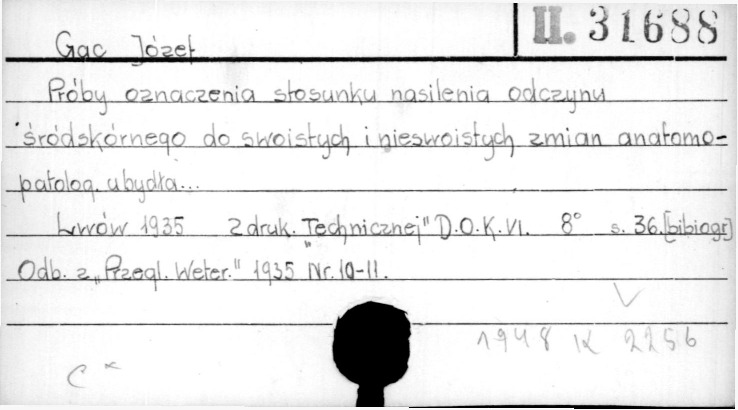 II. 31688
Gąc Józef
Próby oznaczenia stosunku nasilenia odczynu
śródskórnego do swoistych i nieswoistych zmian anatomo-
patolog. u bydła...
Lwów 1935 z druk. "Technicznej" D.O.K.VI. 8° s. 36.[bibiogr]
Odb. z „Przegl. Weter." 1935 Nr. 10-11.
1948 K 2256
C x